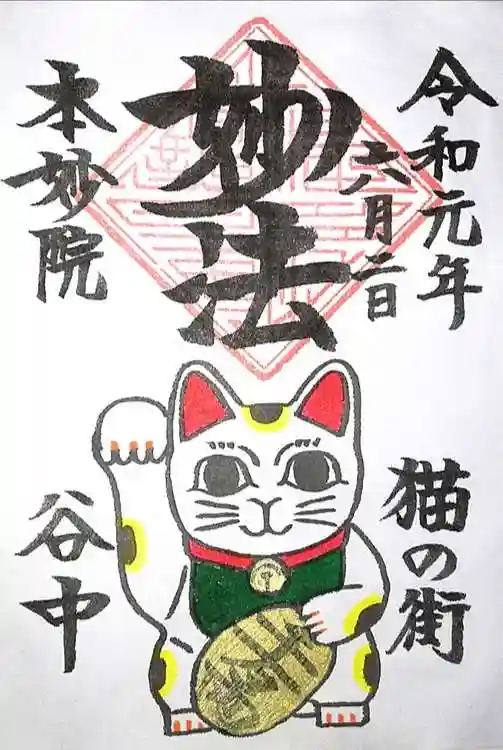 令和元年
六月二日
妙法
本妙院
猫の街
谷中